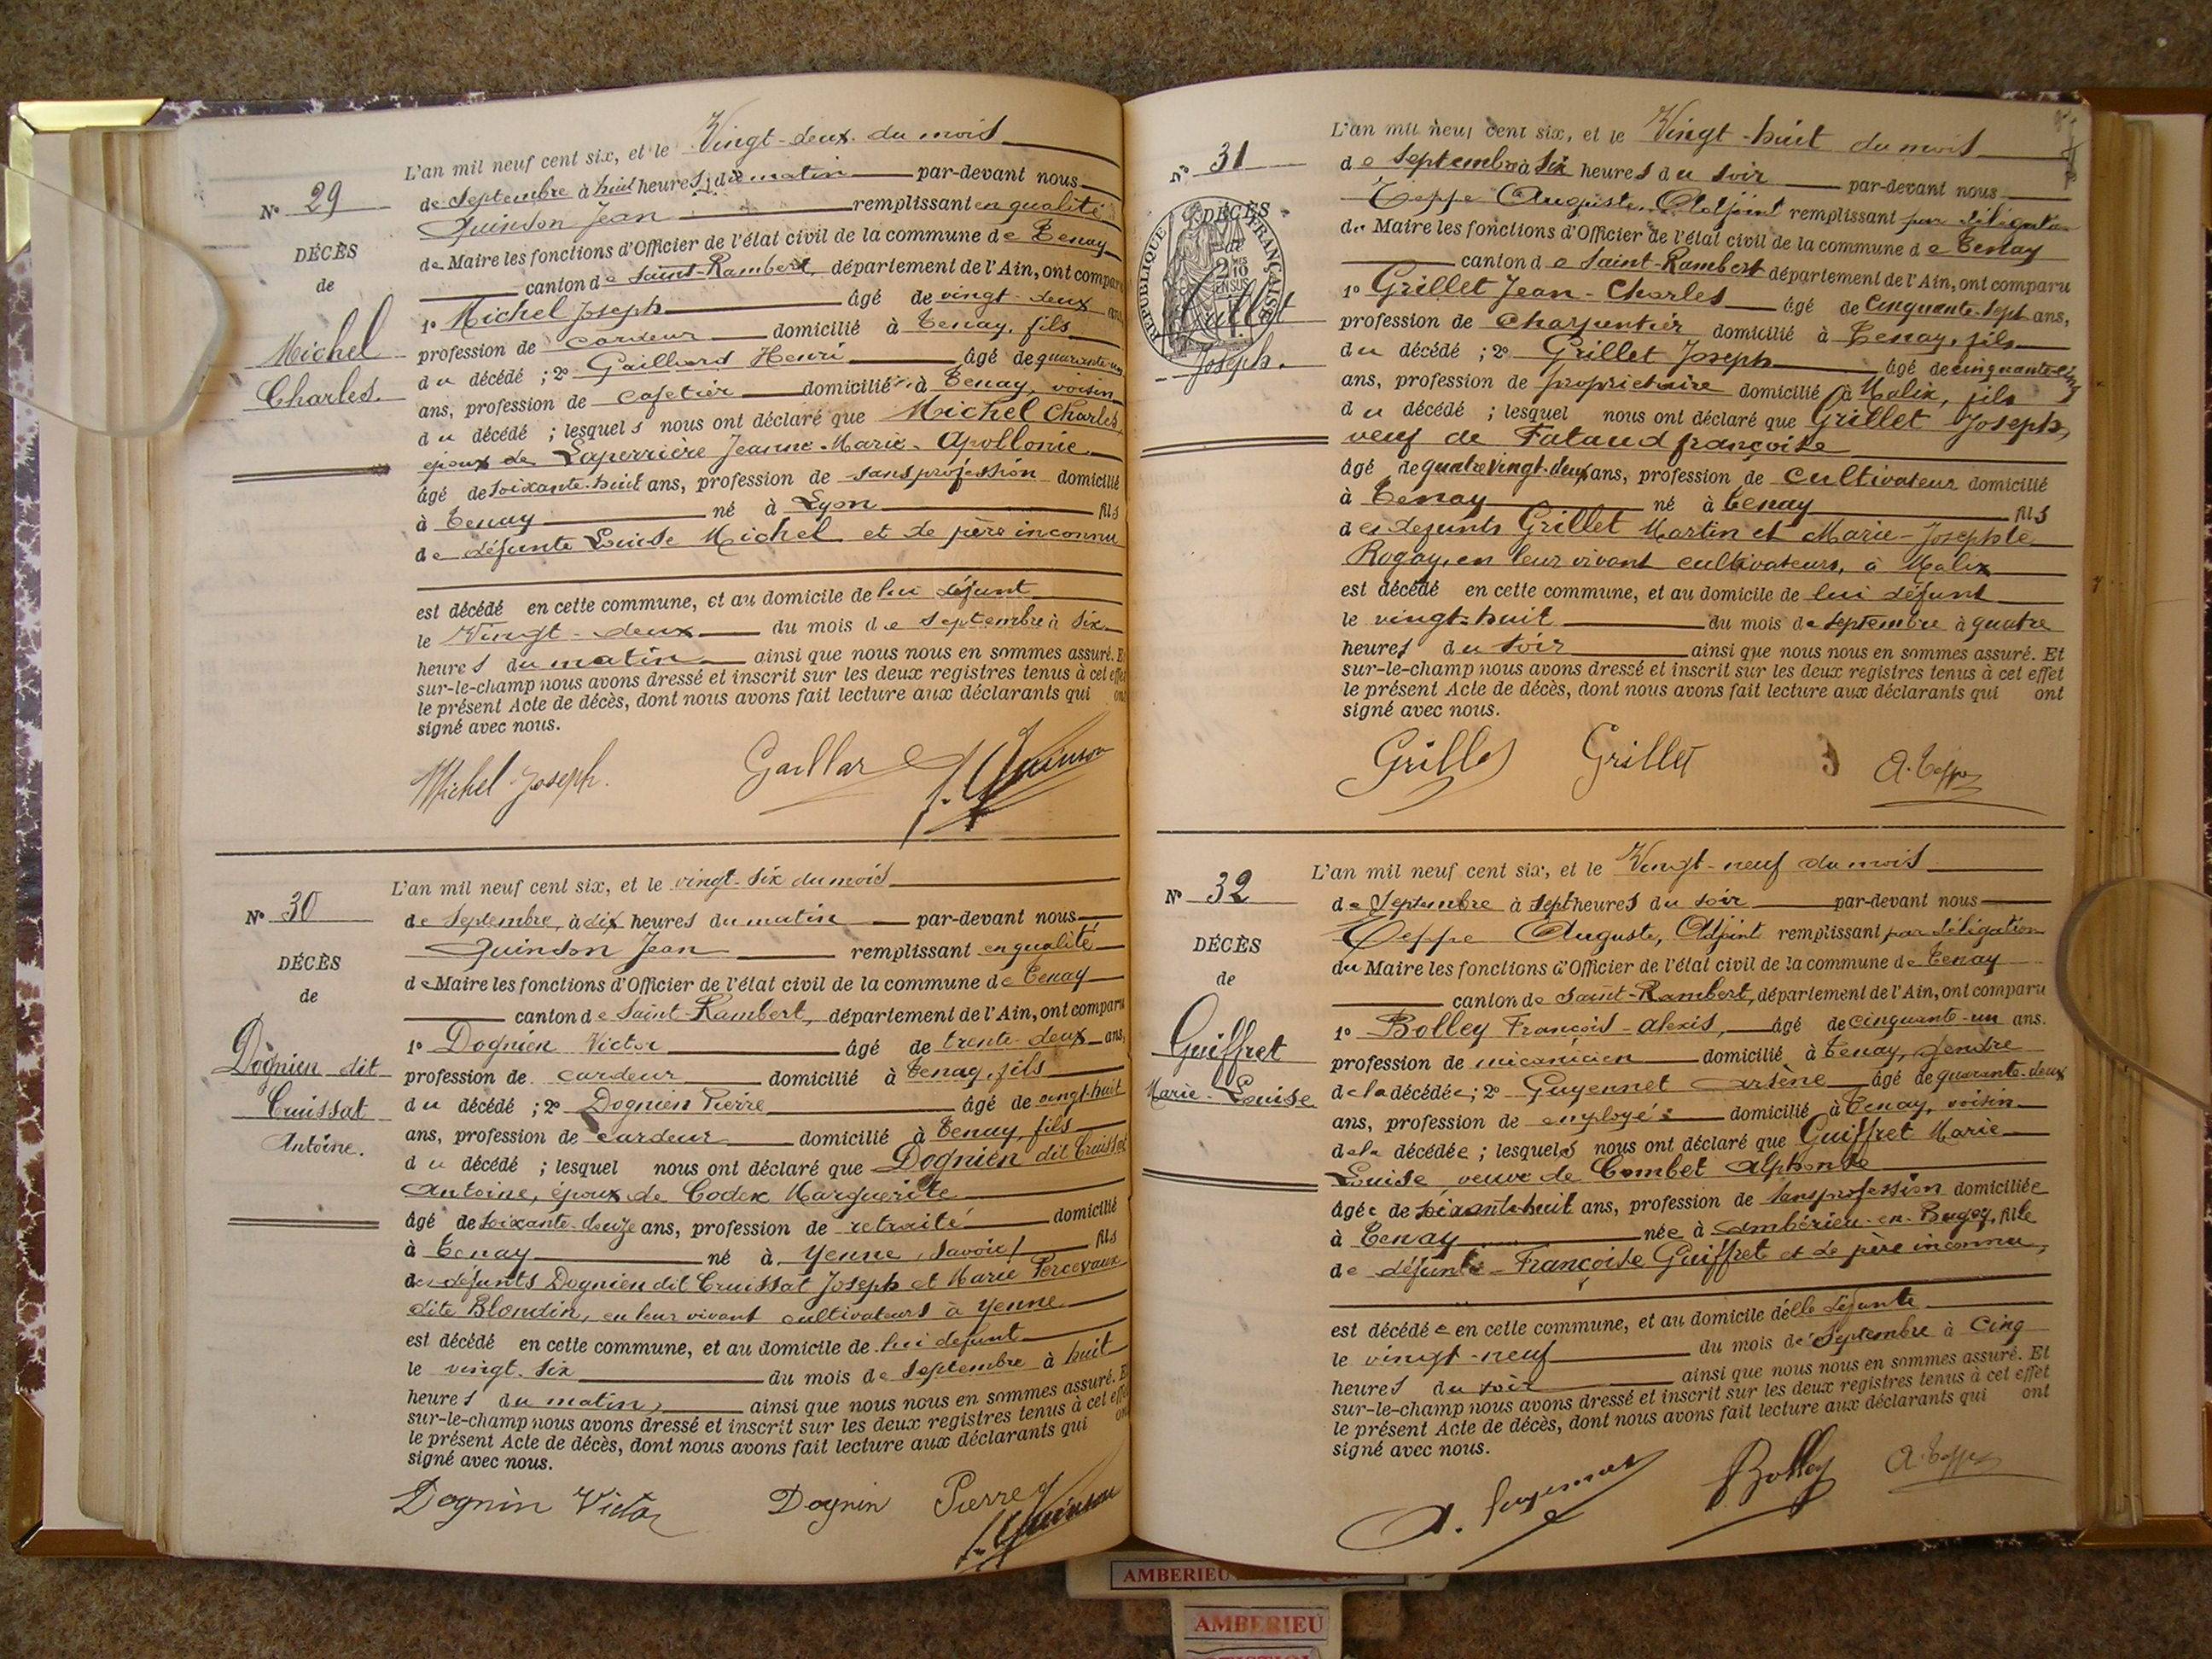 L'an mil neuf cent six, et le Vingt-deux du mois
N° 29
de Septembre à huit heures du matin par-devant nous
Quinson Jean remplissant en qualité
DÉCÈS
de Maire les fonctions d'Officier de l'état civil de la commune de Tenay
de
canton de Saint-Rambert, département de l'Ain, ont comparu
1° Michel Joseph âgé de vingt-deux ans
Michel
profession de cardeur domicilié à Tenay, fils
Charles.
du décédé ; 2° Gailliard Henri âgé de quarante-un
ans, profession de cafetier domicilié à Tenay, voisin
du décédé ; lesquels nous ont déclaré que Michel Charles,
époux de Laperrière Jeanne-Marie-Apollonie
âgé de soixante-huit ans, profession de sans profession domicilié
à Tenay né à Lyon fils
de défunte Louise Michel et de père inconnu
est décédé en cette commune, et au domicile de lui défunt
le Vingt-deux du mois de Septembre à six
heures du matin ainsi que nous nous en sommes assuré. Et
sur-le-champ nous avons dressé et inscrit sur les deux registres tenus à cet effet
le présent Acte de décès, dont nous avons fait lecture aux déclarants qui ont
signé avec nous.
Michel Joseph. Gaillard J. Quinson
L'an mil neuf cent six, et le vingt-six du mois
N° 30
de Septembre, à dix heures du matin par-devant nous
Quinson Jean remplissant en qualité
DÉCÈS
de Maire les fonctions d'Officier de l'état civil de la commune de Tenay
de
canton de Saint-Rambert, département de l'Ain, ont comparu
1° Dognien Victor âgé de trente-deux ans,
Dognien dit
profession de cardeur domicilié à Tenay, fils
Cruissat
du décédé ; 2° Dognien Pierre âgé de vingt-huit
Antoine.
ans, profession de cardeur domicilié à Tenay, fils
du décédé ; lesquel nous ont déclaré que Dognien dit Cruissat
Antoine, époux de Codex Marguerite
âgé de soixante-douze ans, profession de retraité domicilié
à Tenay né à Yenne (Savoie) fils
des défunts Dognien dit Cruissat Joseph et Marie Percevaux
dite Blondin, en leur vivant cultivateurs à Yenne
est décédé en cette commune, et au domicile de lui défunt
le vingt-six du mois de Septembre à huit
heures du matin, ainsi que nous nous en sommes assuré. Et
sur-le-champ nous avons dressé et inscrit sur les deux registres tenus à cet effet
le présent Acte de décès, dont nous avons fait lecture aux déclarants qui ont
signé avec nous.
Dognin Victor Dognin Pierre J. Quinson
L'an mil neuf cent six, et le Vingt-huit du mois
N° 31
de Septembre à six heures du soir par-devant nous
Teppe Auguste, Adjoint remplissant par délégation
DÉCÈS
de
RÉPUBLIQUE FRANÇAISE
du Maire les fonctions d'Officier de l'état civil de la commune de Tenay
canton de Saint-Rambert département de l'Ain, ont comparu
1° Grillet Jean-Charles âgé de Cinquante-sept ans,
Grillet
profession de charpentier domicilié à Tenay, fils
Joseph.
du décédé ; 2° Grillet Joseph âgé de cinquante-cinq
ans, profession de propriétaire domicilié à Malix, fils
du décédé ; lesquel nous ont déclaré que Grillet Joseph,
veuf de Fataud françoise
âgé de quatre vingt-deux ans, profession de cultivateur domicilié
à Tenay né à Tenay fils
des defunts Grillet Martin et Marie-Josephte
Rogay, en leur vivant cultivateurs, à Malix
est décédé en cette commune, et au domicile de lui défunt
le vingt-huit du mois de septembre à quatre
heures du soir ainsi que nous nous en sommes assuré. Et
sur-le-champ nous avons dressé et inscrit sur les deux registres tenus à cet effet
le présent Acte de décès, dont nous avons fait lecture aux déclarants qui ont
signé avec nous.
Grillet Grillet A. Teppe
L'an mil neuf cent six, et le Vingt-neuf du mois
N° 32
de Septembre à sept heures du soir par-devant nous
Teppe Auguste, Adjoint remplissant par délégation
DÉCÈS
du Maire les fonctions d'Officier de l'état civil de la commune de Tenay
de
canton de Saint-Rambert, département de l'Ain, ont comparu
1° Bolley François-alexis, âgé de cinquante-un ans.
Guiffret
profession de mécanicien domicilié à Tenay, gendre
Marie-Louise
de la décédée ; 2° Guyennet arsène âgé de quarante-deux
ans, profession de employé domicilié à Tenay, voisin
de la décédée ; lesquels nous ont déclaré que Guiffret Marie
Louise veuve de Combet alphonse
âgée de soixante-huit ans, profession de sans profession domiciliée
à Tenay née à Ambérieu-en-Bugey, fille
de défunte Françoise Guiffret et de père inconnu,
est décédée en cette commune, et au domicile d'elle défunte
le vingt-neuf du mois de Septembre à cinq
heures du soir ainsi que nous nous en sommes assuré. Et
sur-le-champ nous avons dressé et inscrit sur les deux registres tenus à cet effet
le présent Acte de décès, dont nous avons fait lecture aux déclarants qui ont
signé avec nous.
A. Guyennet Bolley A. Teppe
AMBERIEU
AMBERIEU